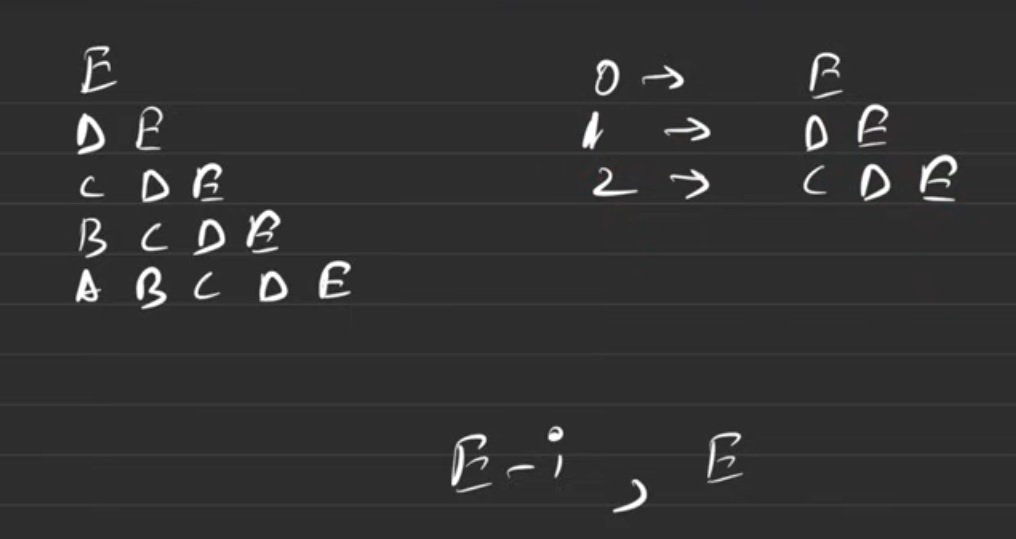 E
D E
C D E
B C D E
A B C D E
0 → E
1 → D E
2 → C D E
E - i , E